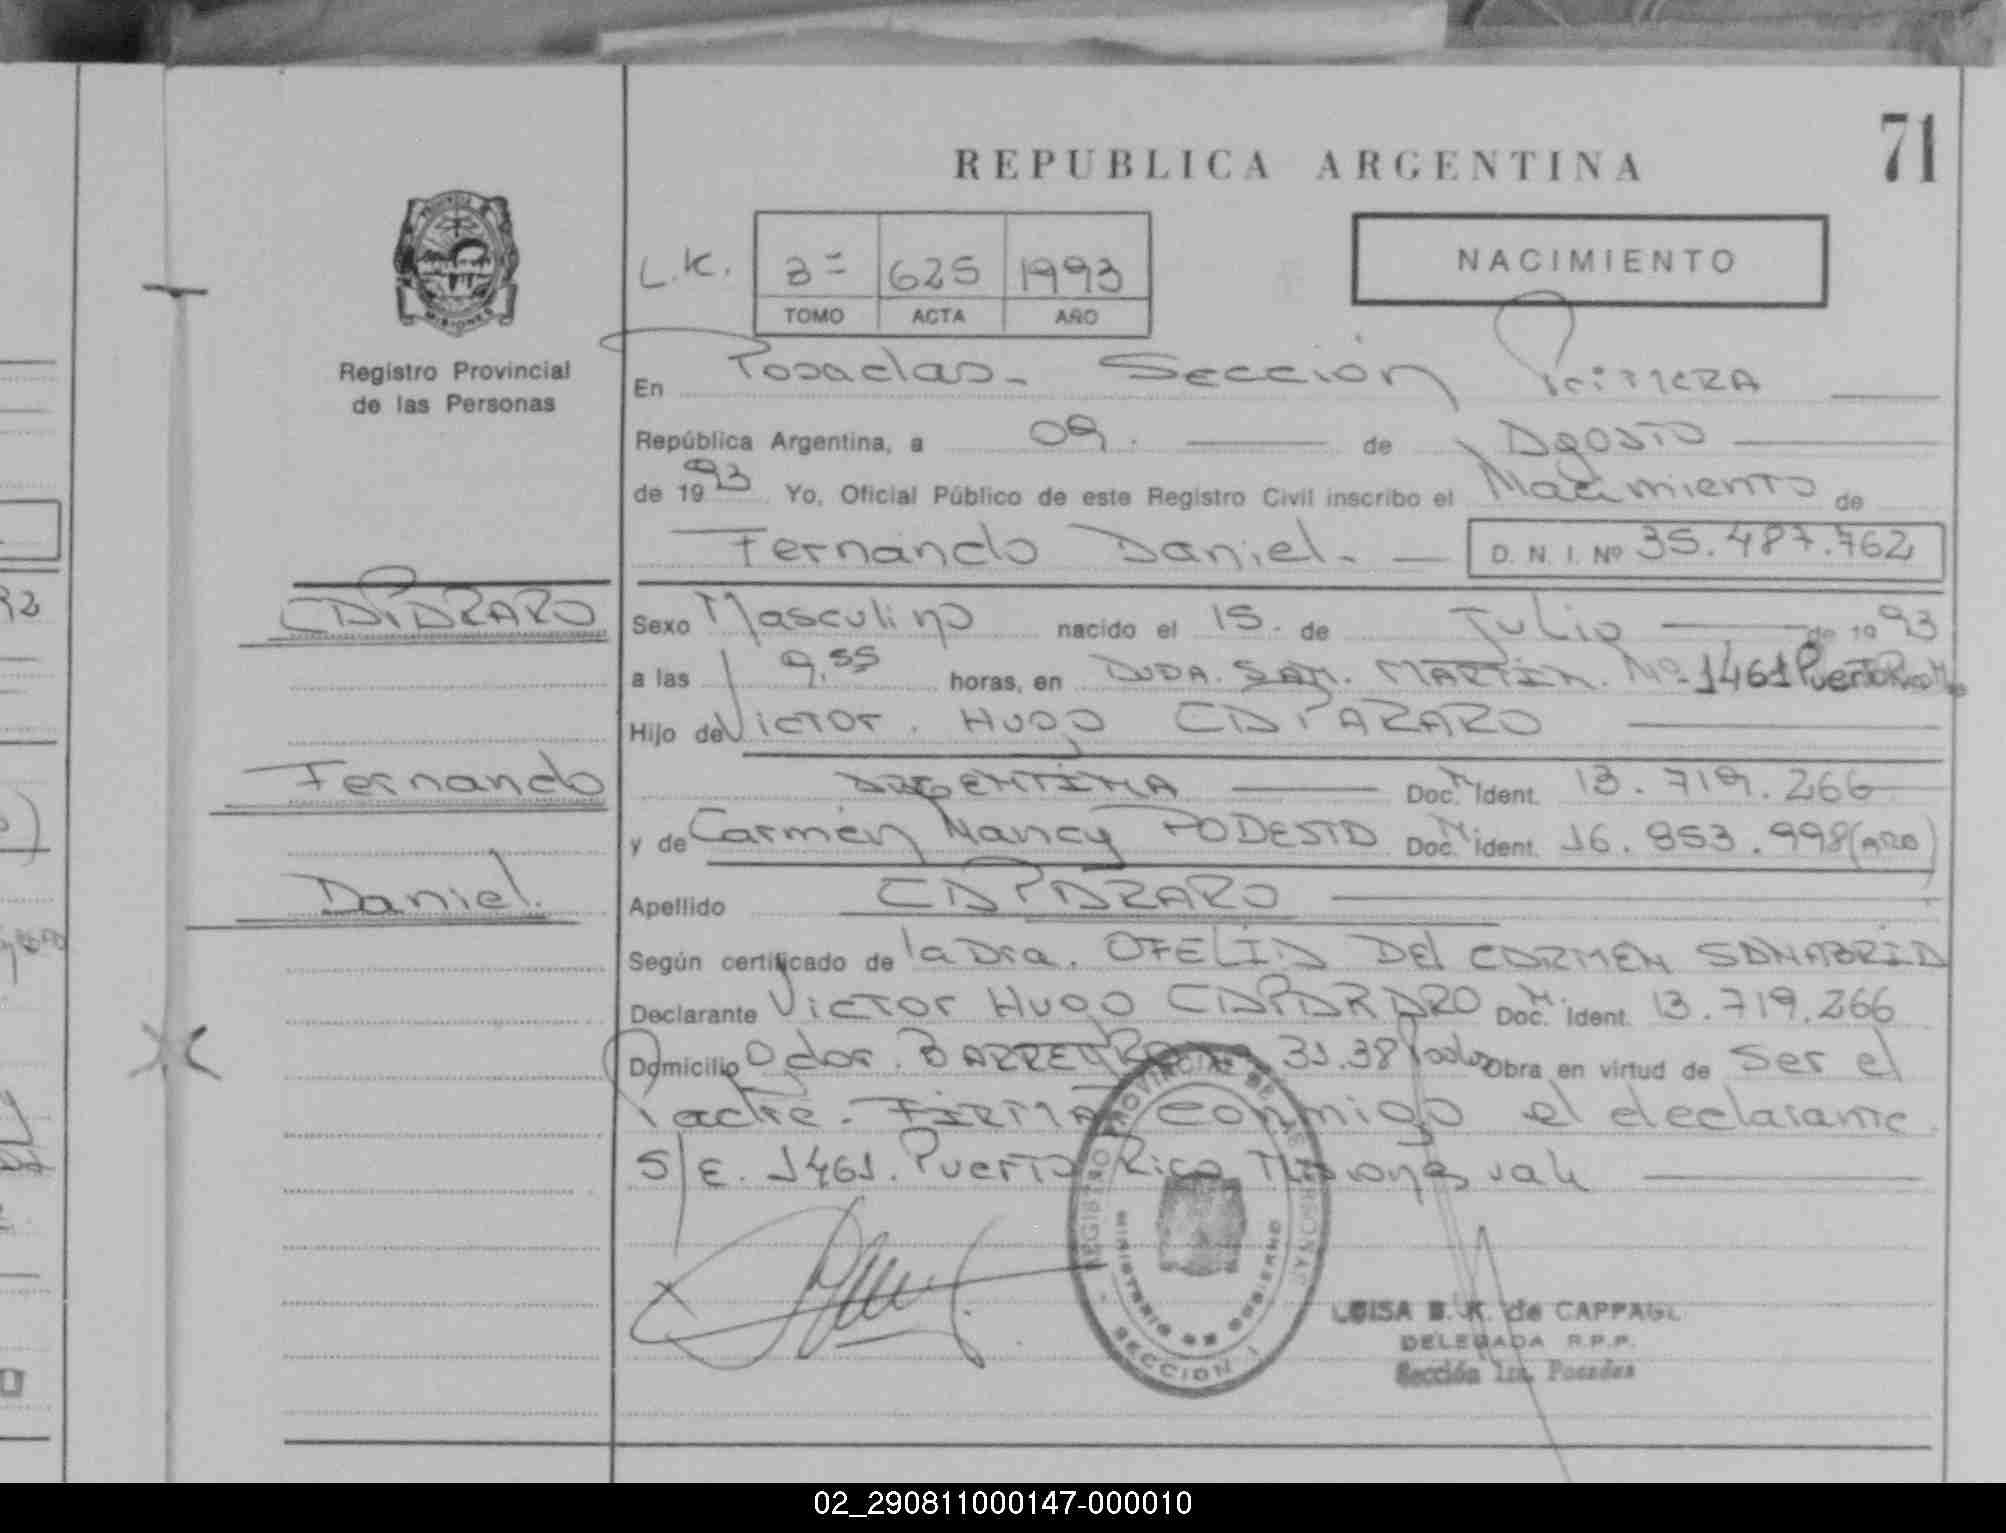 71
REPUBLICA ARGENTINA
NACIMIENTO
L.K. 3= 625 1993
TOMO ACTA AÑO
PROVINCIA
MISIONES
Registro Provincial
de las Personas
En Posadas - Sección Primera
República Argentina, a 09. de Agosto
de 1993 Yo, Oficial Público de este Registro Civil inscribo el Nacimiento de
Fernando Daniel. - D. N. I. Nº 35.487.762
CAPARARO
Fernando
Daniel.
Sexo Masculino nacido el 15. de Julio de 1993
a las 9,55 horas, en Avda. San. Martin. Nº 1461 Puerto Rico Mnes
Hijo de Victor. Hugo CAPARARO
ARGENTINA Doc. M. Ident. 13.719.266
y de Carmen Nancy PODESTA Doc. M. Ident. 16.853.998 (ARG)
Apellido CAPARARO
Según certificado de la Dra. OFELIA DEL CARMEN SANABRIA
Declarante Victor Hugo CAPARARO Doc. M. Ident. 13.719.266
Domicilio 31.38 Obra en virtud de ser el
Padre. FIRMA conmigo el declarante
S/E. 1461. Puerto Rico Misiones vale
REGISTRO PROVINCIAL DE LAS PERSONAS
MINISTERIO DE GOBIERNO
SECCION 1
LUISA B. K. de CAPPAGL
DELEGADA R.P.P.
Sección 1ra. Posadas
02_290811000147-000010